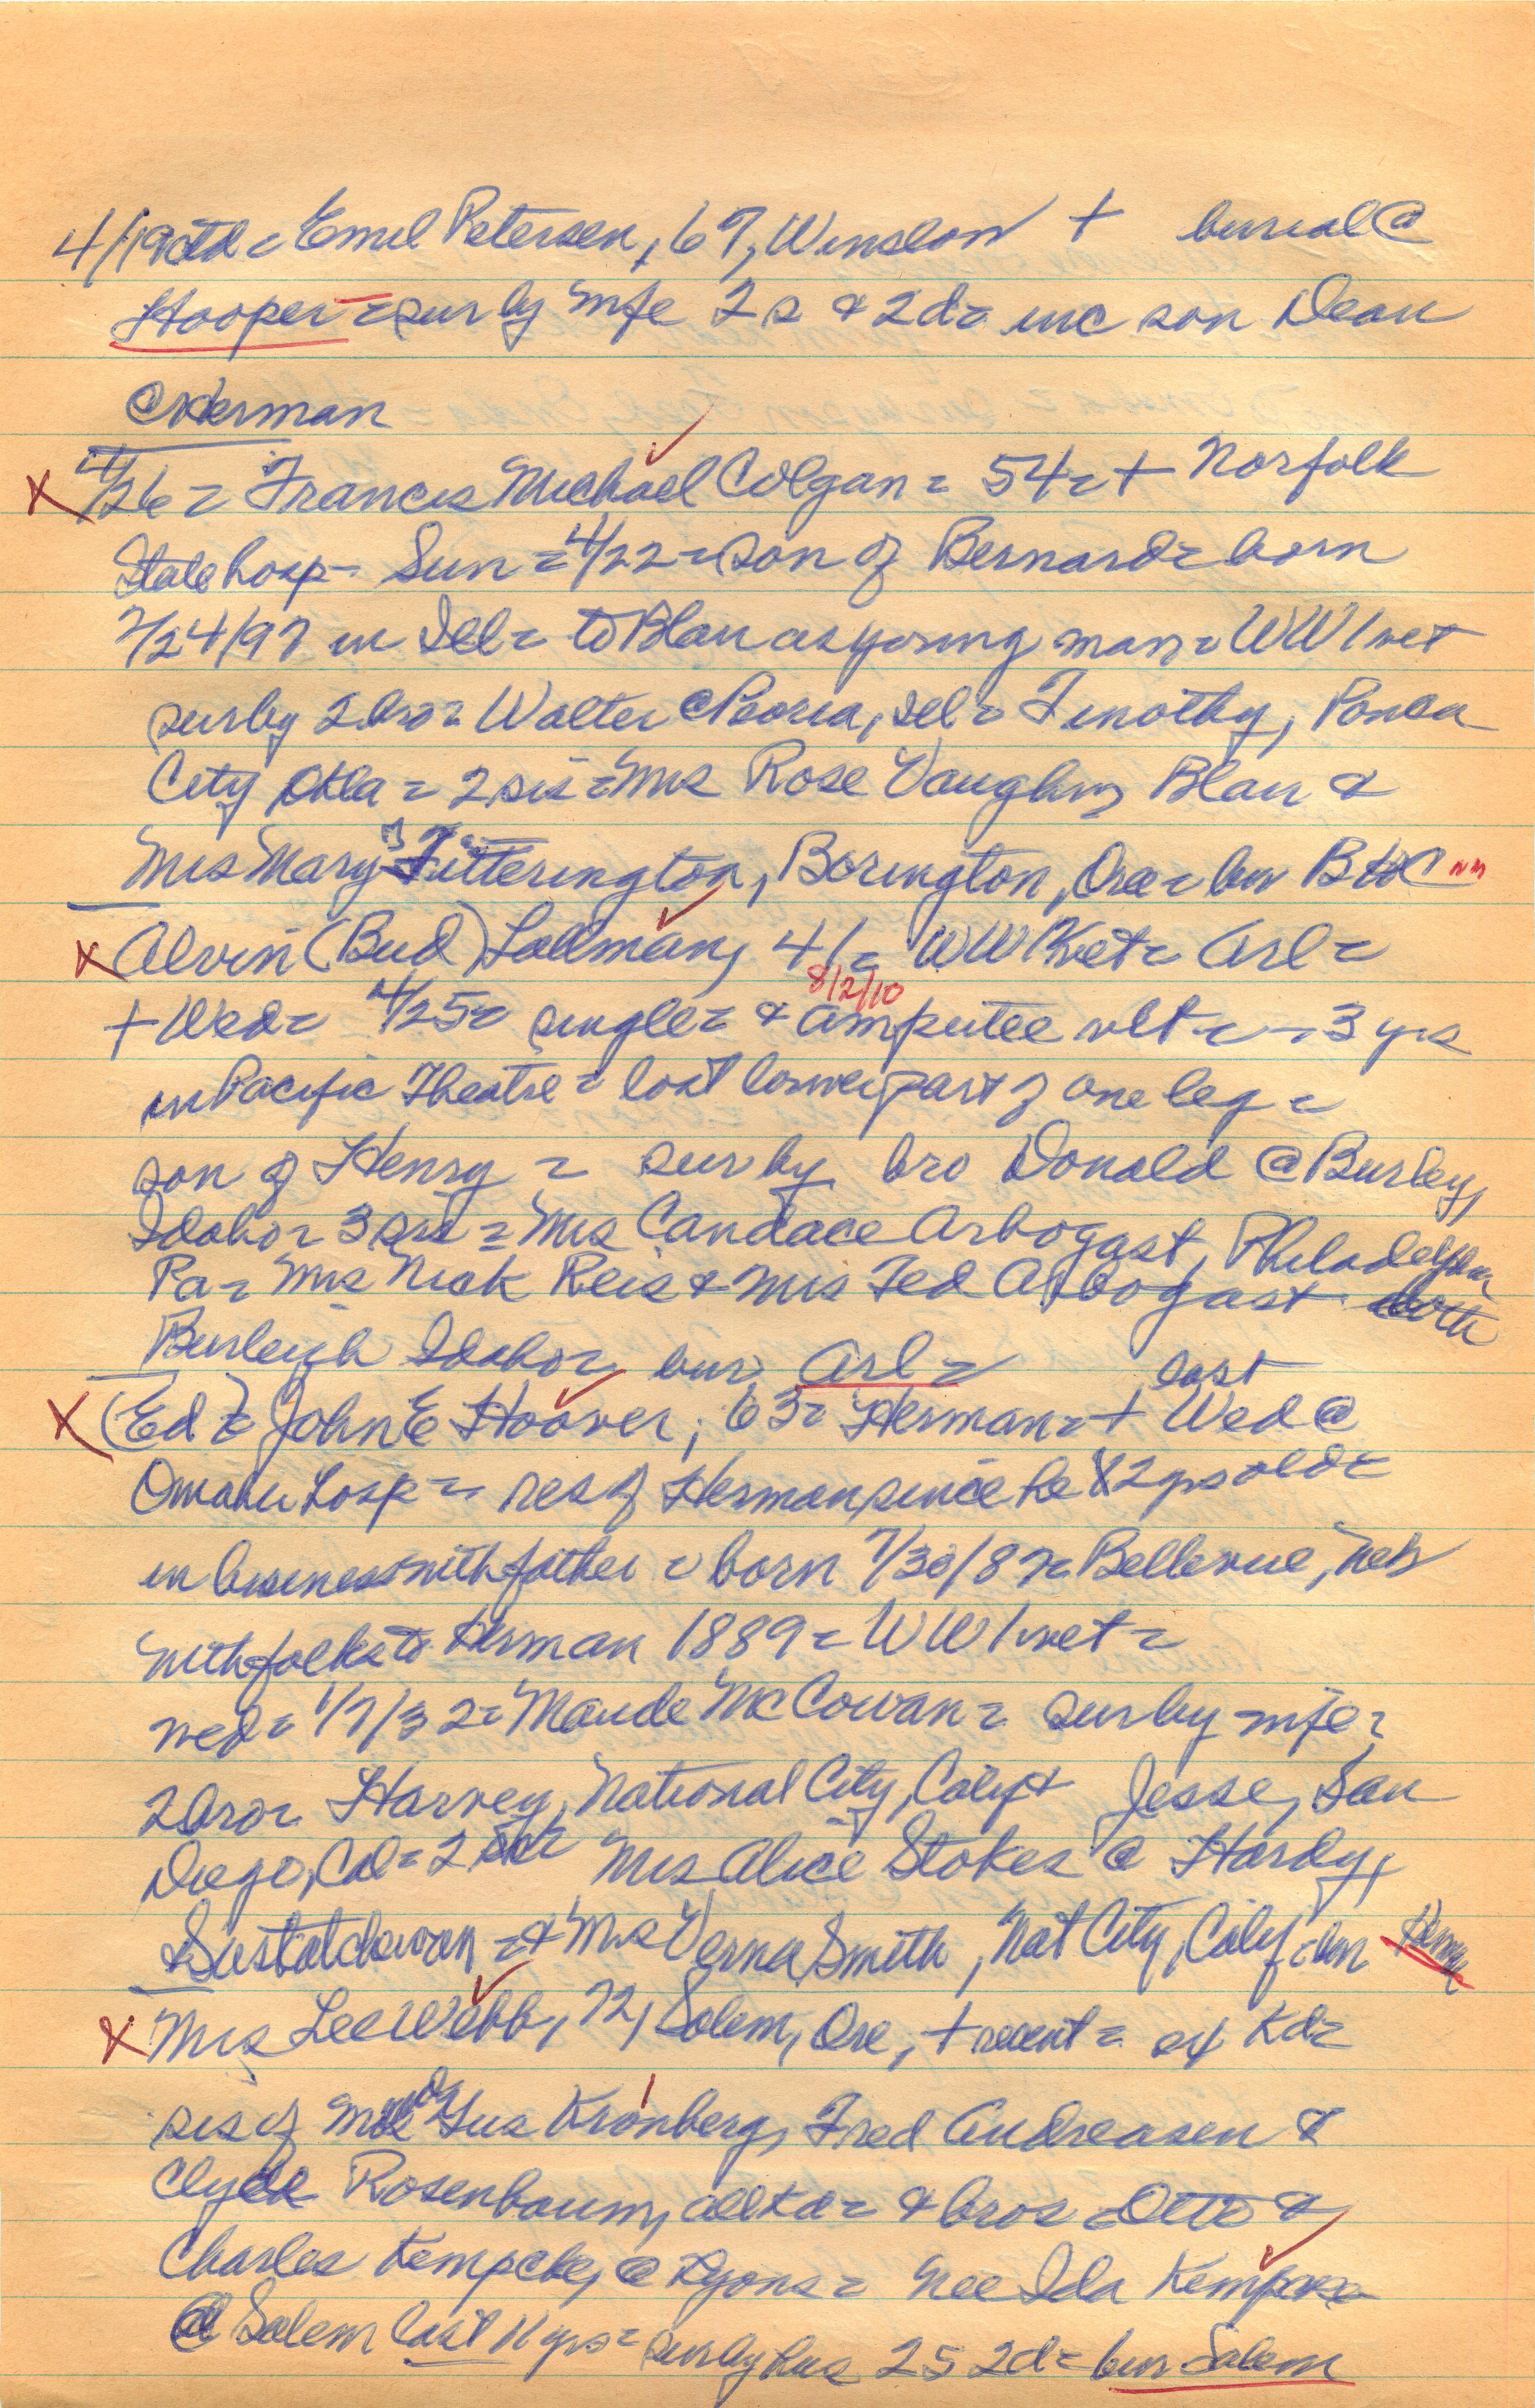 4/19 ctd = Emel Petersen, 67, Winslow + burial @
Hooper = sur by wife 2 s & 2d = inc son Dean
@ Herman
X 4/26 = Francis Michael Colgan = 54 = + Norfolk
State hosp = Sun = 4/22 = son of Bernard = born
7/24/97 in Ill = to Blair as young man = WW1 vet
sur by 2 bro = Walter @ Peoria, Ill = Timothy, Ponca
City Okla = 2 sis = Mrs Rose Vaughn, Blair &
Mrs Mary Titterington, Borington, Ore = bur B
X Alvin (Bud) Lallman, 41 = WW vet = Arl =
8/2/10
+ Wed = 4/25 = single = & amputee vet = 3 yrs
in Pacific Theatre = lost lower part of one leg =
son of Henry = sur by bro Donald @ Burley,
Idaho = 3 sis = Mrs Candace Arbogast, Philadelphia
Pa = Mrs Nick Reis & Mrs Ted Arbogast both
Burleigh Idaho = bur Arl =
X (Ed) John E Hoover, 63 = Herman = + last Wed @
Omaha hosp = res of Herman since he 2 yrs old =
in business with father = born 7/30/87 = Bellevue, Neb
with folks to Herman 1889 = WW1 vet =
wed = 1/7/32 = Maude McCowan = sur by wife =
2 bro = Harvey, National City, Calif & Jesse, San
Diego, Cal = 2 sis = Mrs Alice Stokes @ Hardy,
Sastatchewan = & Mrs Verna Smith, Nat City, Calif = bur Herman
X Mrs Lee Webb, 72, Salem, Ore, + recent = ex Kd =
sis of Gus Kronberg, Fred Andreasen &
Clyde Rosenbaum, all Kd = & bros = Otto &
Charles Kempcke, @ Lyons = nee Ida Kempcke
@ Salem last 11 yrs = sur by hus 2 S 2d = bur Salem